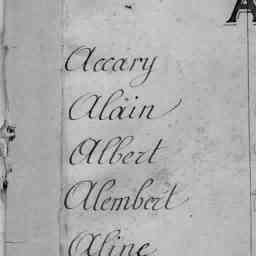 A
Accary
Alain
Albert
Alembert
Aline